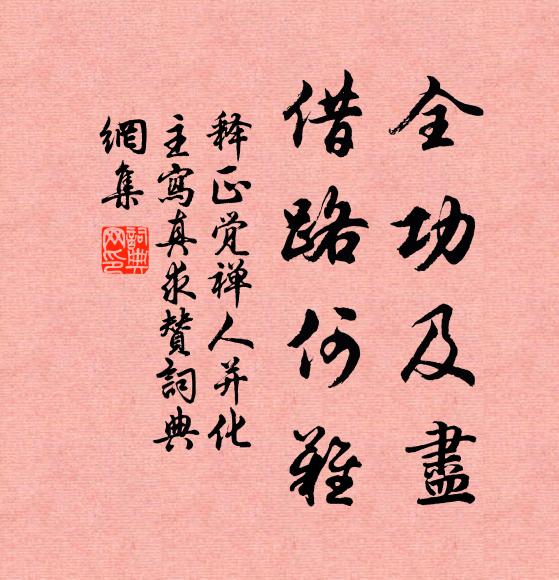 全功及盡
借路何難
释正觉禅人并化
主寫真求贊詞典
網集
詞典網印